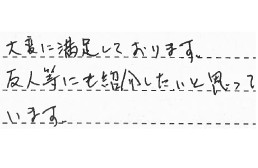 大変に満足しております。
友人等にも紹介したいと思って
います。